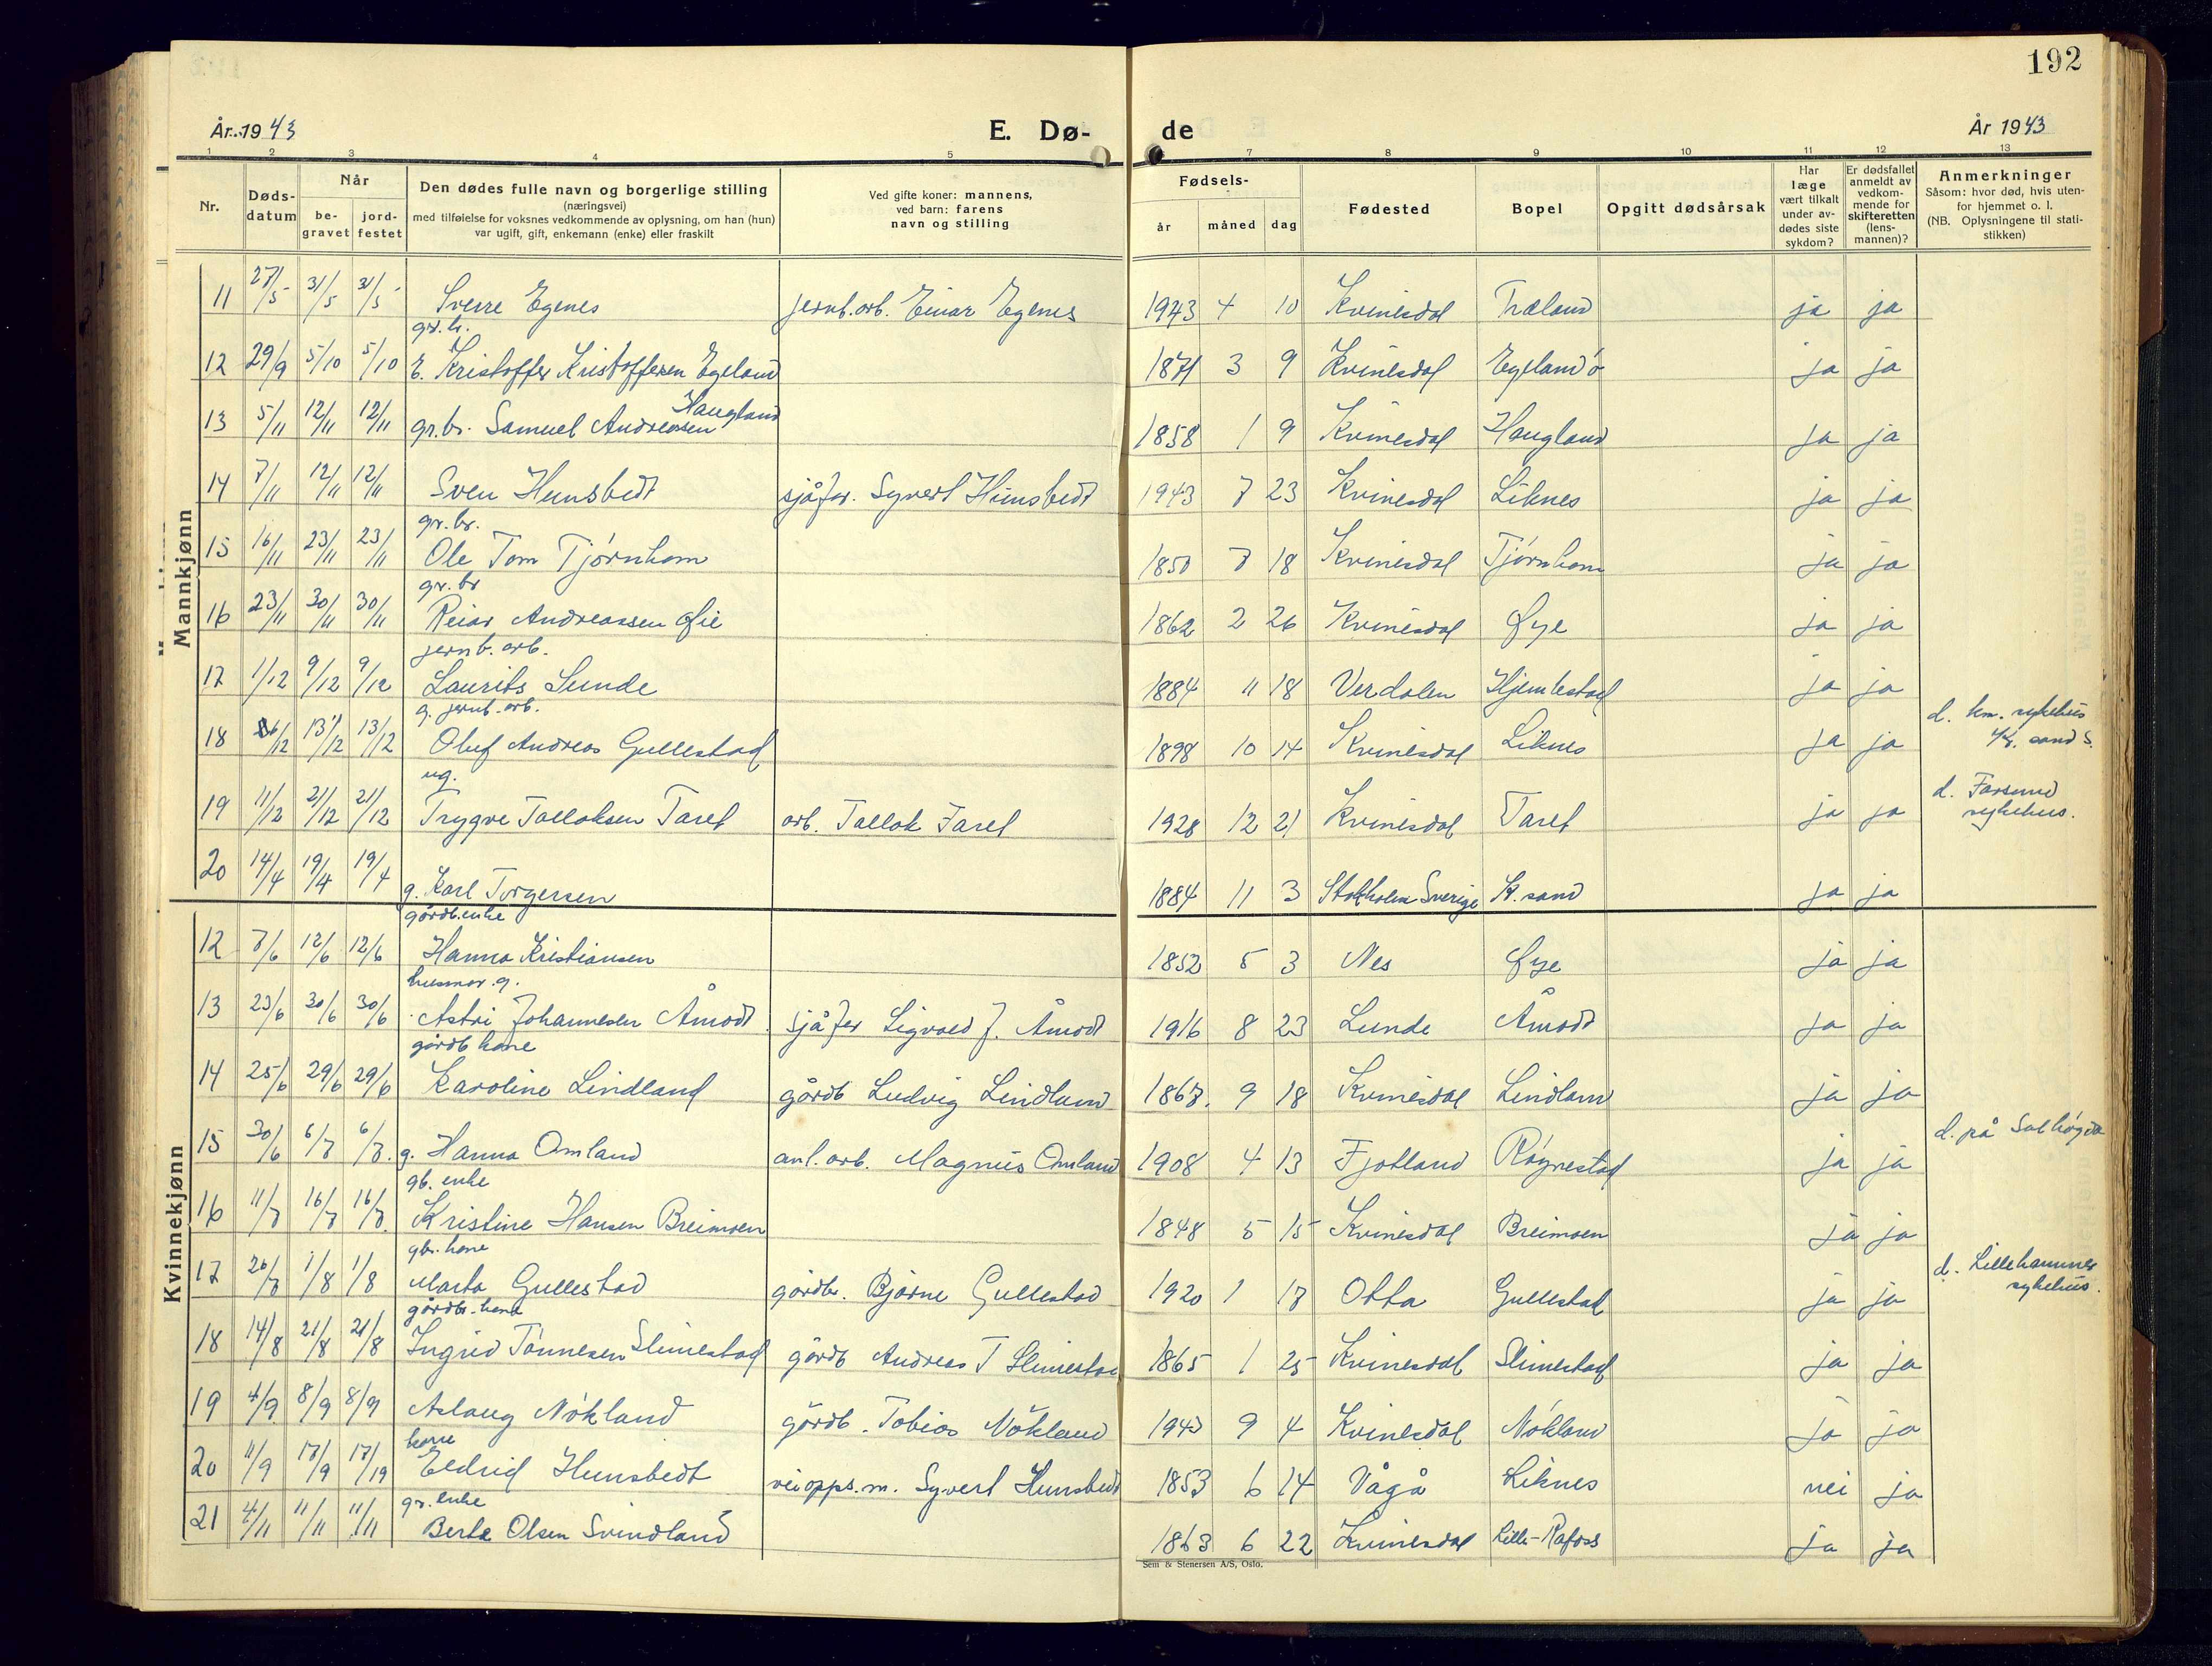 192
År 1943
E. Dø-
de
År 1943
1 2 3 4 5 7 8 9 10 11 12 13
Nr.
Døds-
datum
Når
be-
gravet
jord-
festet
Den dødes fulle navn og borgerlige stilling
(næringsvei)
med tilføielse for voksnes vedkommende av oplysning, om han (hun)
var ugift, gift, enkemann (enke) eller fraskilt
Ved gifte koner: mannens,
ved barn: farens
navn og stilling
Fødsels-
år måned dag
Fødested
Bopel
Opgitt dødsårsak
Har
læge
vært tilkalt
under av-
dødes siste
sykdom?
Er dødsfallet
anmeldt av
vedkom-
mende for
skifteretten
(lens-
mannen)?
Anmerkninger
Såsom: hvor død, hvis uten-
for hjemmet o. l.
(NB. Oplysningene til stati-
stikken)
Mannkjønn
11 27/5 31/5 31/5 Sverre Egenes jernb.arb. Einar Egenes 1943 4 10 Kvinesdal Træland ja ja
gr. br.
12 29/9 5/10 5/10 E. Kristoffer Kristoffersen Egeland 1871 3 9 Kvinesdal Egeland ø ja ja
Haugland
13 5/11 12/11 12/11 gr.br. Samuel Andreassen 1858 1 9 Kvinesdal Haugland ja ja
14 7/11 12/11 12/11 Sven Hunsbedt sjåfør. Syvert Hunsbedt 1943 7 23 Kvinesdal Liknes ja ja
gr. br.
15 16/11 23/11 23/11 Ole Tom Tjørnhom 1850 7 18 Kvinesdal Tjørnhom ja ja
gr. br
16 23/11 30/11 30/11 Reiar Andreassen Øie 1862 2 26 Kvinesdal Øye ja ja
jernb. arb.
17 1/12 9/12 9/12 Laurits Sunde 1884 11 18 Verdalen Hjemlestad ja ja
g. jernb. arb.
18 6/12 13/12 13/12 Oluf Andreas Gullestad 1898 10 14 Kvinesdal Liknes ja ja d. km. sykehus
Kr. sand S.
ug.
19 11/12 21/12 21/12 Trygve Tallaksen Faret arb. Tallak Faret 1928 12 21 Kvinesdal Faret ja ja d. Farsund
sykehus.
20 14/4 19/4 19/4 g. Karl Torgersen 1884 11 3 Stokholm Sverige Kr. sand ja ja
Kvinnekjønn
gårdb.enke
12 7/6 12/6 12/6 Hanna Kristiansen 1852 5 3 Nes Øye ja ja
husmor. g.
13 23/6 30/6 30/6 Astri Johannesen Åmodt sjåfør Sigvald J. Åmodt 1916 8 23 Lunde Åmodt ja ja
gårdb kone
14 25/6 29/6 29/6 Karoline Lindland gårdb Ludvig Lindland 1867. 9 18 Kvinesdal Lindland ja ja
15 30/6 6/7 6/7. g. Hanna Omland anl. arb. Magnus Omland 1908 4 13 Fjotland Røynestad ja ja d. på Solhøgda
gb. enke
16 11/7 16/7 16/7. Kristine Hansen Breimoen 1848 5 15 Kvinesdal Breimoen ja ja
gbr. kone
17 26/7 1/8 1/8 Marta Gullestad gårdbr. Bjarne Gullestad 1920 1 17 Otta Gullestad ja ja d. Lillehammer
sykehus.
gårdbr. kone
18 14/8 21/8 21/8 Ingrid Tønnesen Slimestad gårdb Andreas T Slimestad 1865 1 25 Kvinesdal Slimestad ja ja
19 4/9 8/9 8/9 Aslaug Nökland gårdb. Tobias Nökland 1943 9 4 Kvinesdal Nökland ja ja
kone
20 11/9 17/9 17/19 Eldrid Hunsbedt veiopps.m. Syvert Hunsbedt 1853 6 14 Vågå Liknes nei ja
gr. enke
21 4/11 11/11 11/11 Berta Olsen Svindland 1863 6 22 Kvinesdal Lille-Rafoss ja ja
Sem & Stenersen A/S, Oslo.